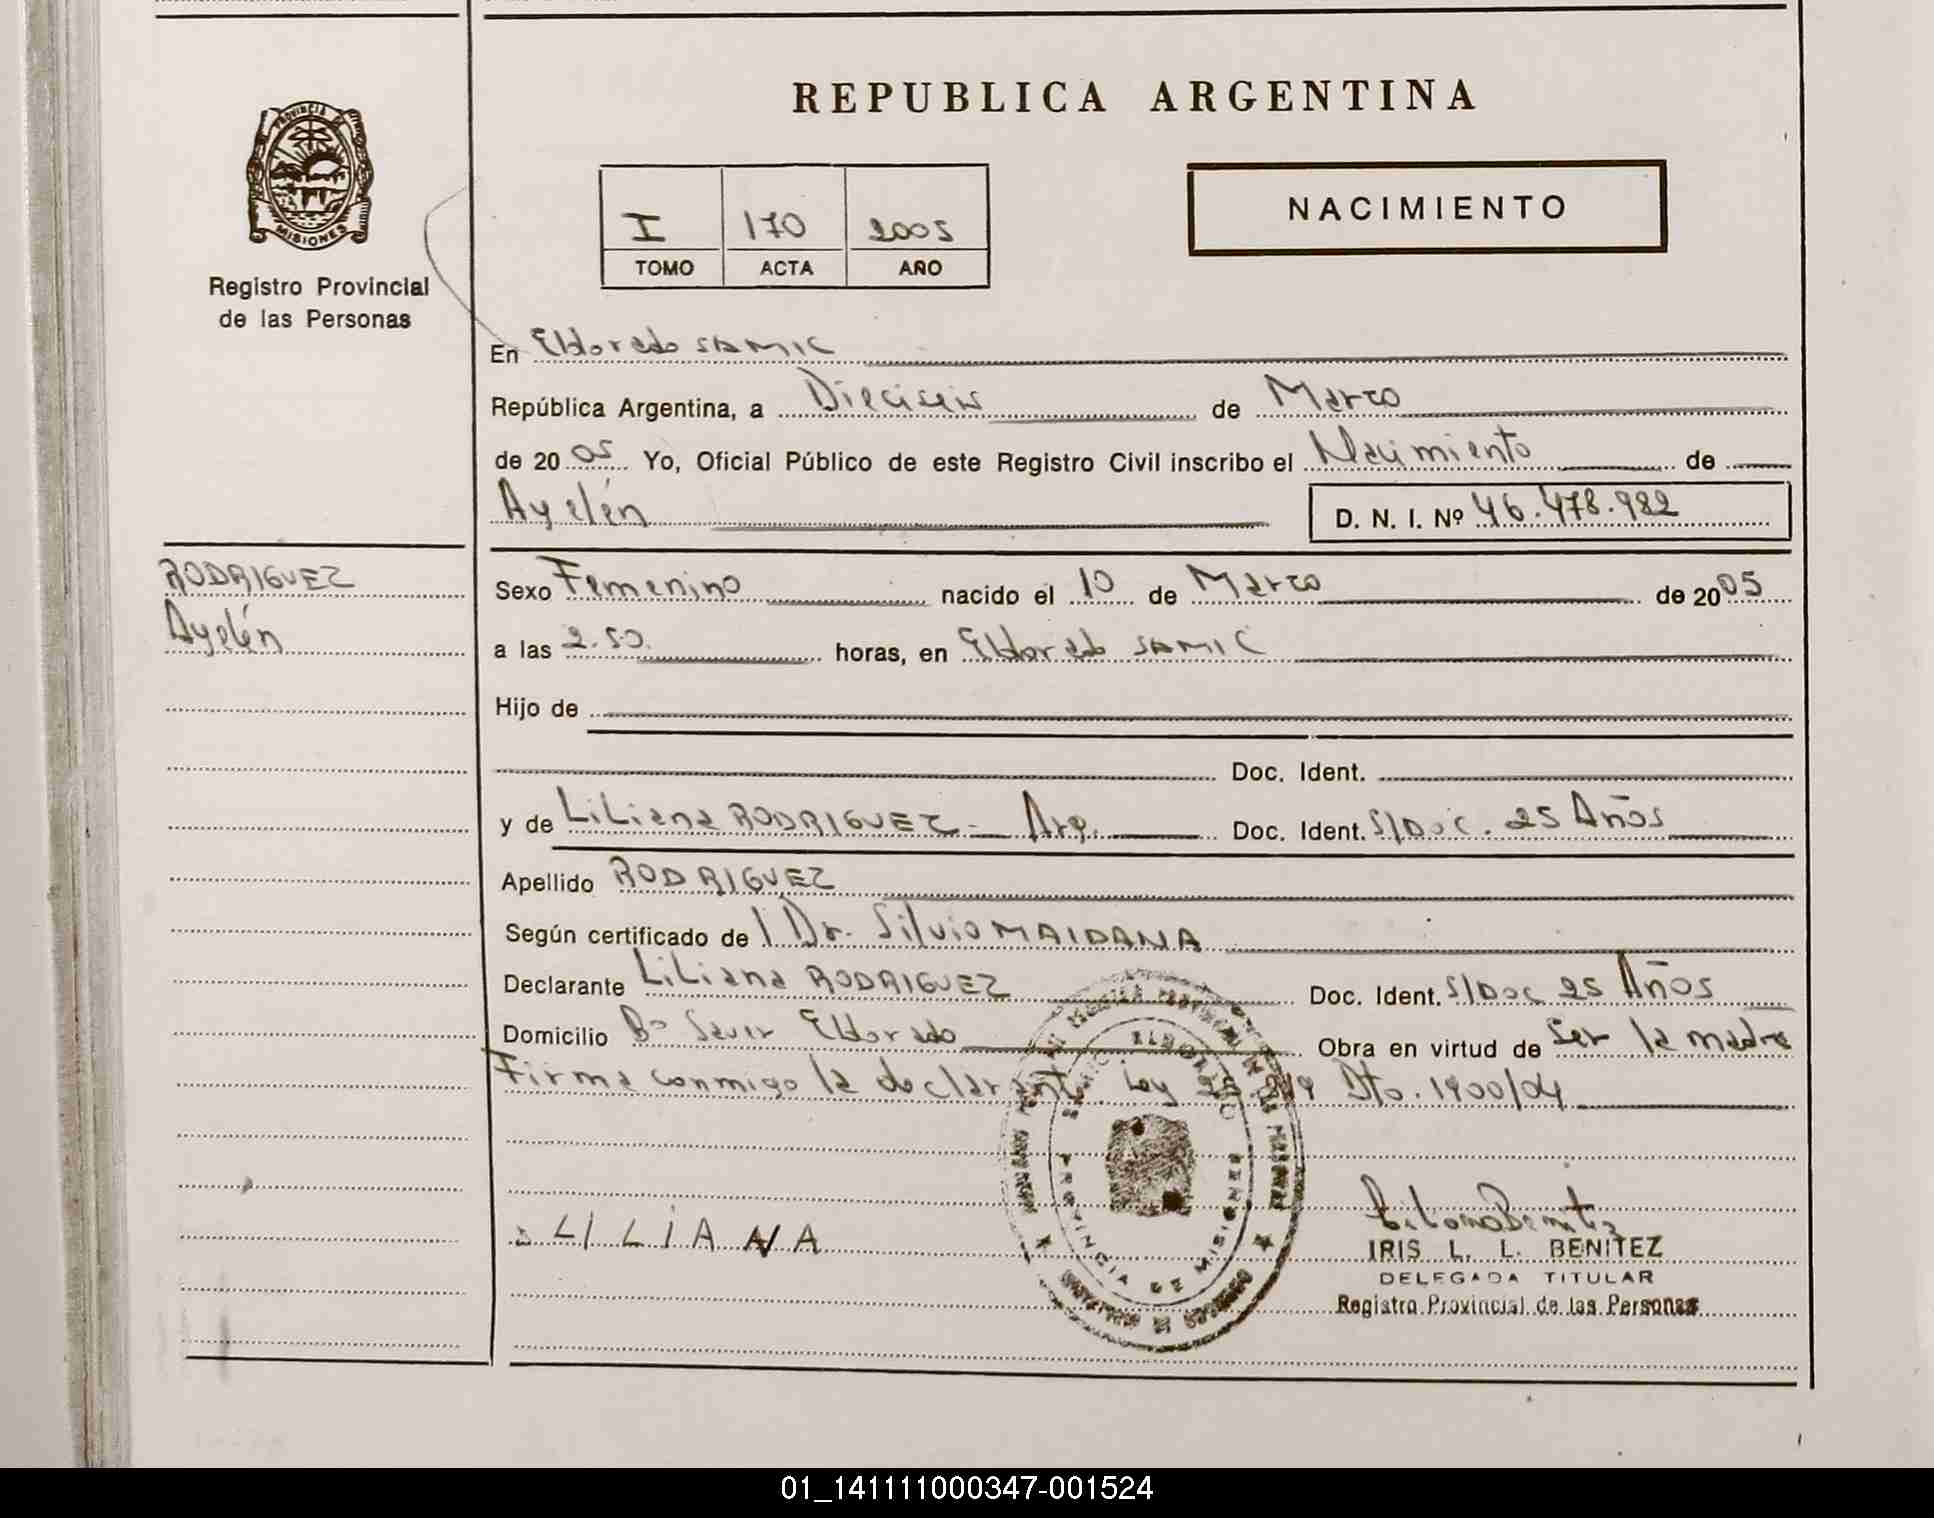 PROVINCIA DE
MISIONES
Registro Provincial
de las Personas
REPUBLICA ARGENTINA
I 170 2005
TOMO ACTA AÑO
NACIMIENTO
En Eldorado SAMIC
República Argentina, a Dieciseis de Marzo
de 20 05 Yo, Oficial Público de este Registro Civil inscribo el Nacimiento de
Ayelén D. N. I. Nº 46.478.982
RODRIGUEZ
Ayelén
Sexo Femenino nacido el 10 de Marzo de 20 05
a las 2.50. horas, en Eldorado SAMIC
Hijo de
Doc. Ident.
y de Liliana RODRIGUEZ - Arg. Doc. Ident. S/Doc. 25 Años
Apellido RODRIGUEZ
Según certificado de Dr. Silvio MAIDANA
Declarante Liliana RODRIGUEZ Doc. Ident. S/Doc 25 Años
Domicilio Bº Eldorado Obra en virtud de Ser la madre
Firma conmigo la declarante. Ley Dto. 1900/04
LILIANA
PROVINCIA DE MISIONES
IRIS L. L. BENITEZ
DELEGADA TITULAR
Registro Provincial de las Personas
01_141111000347-001524